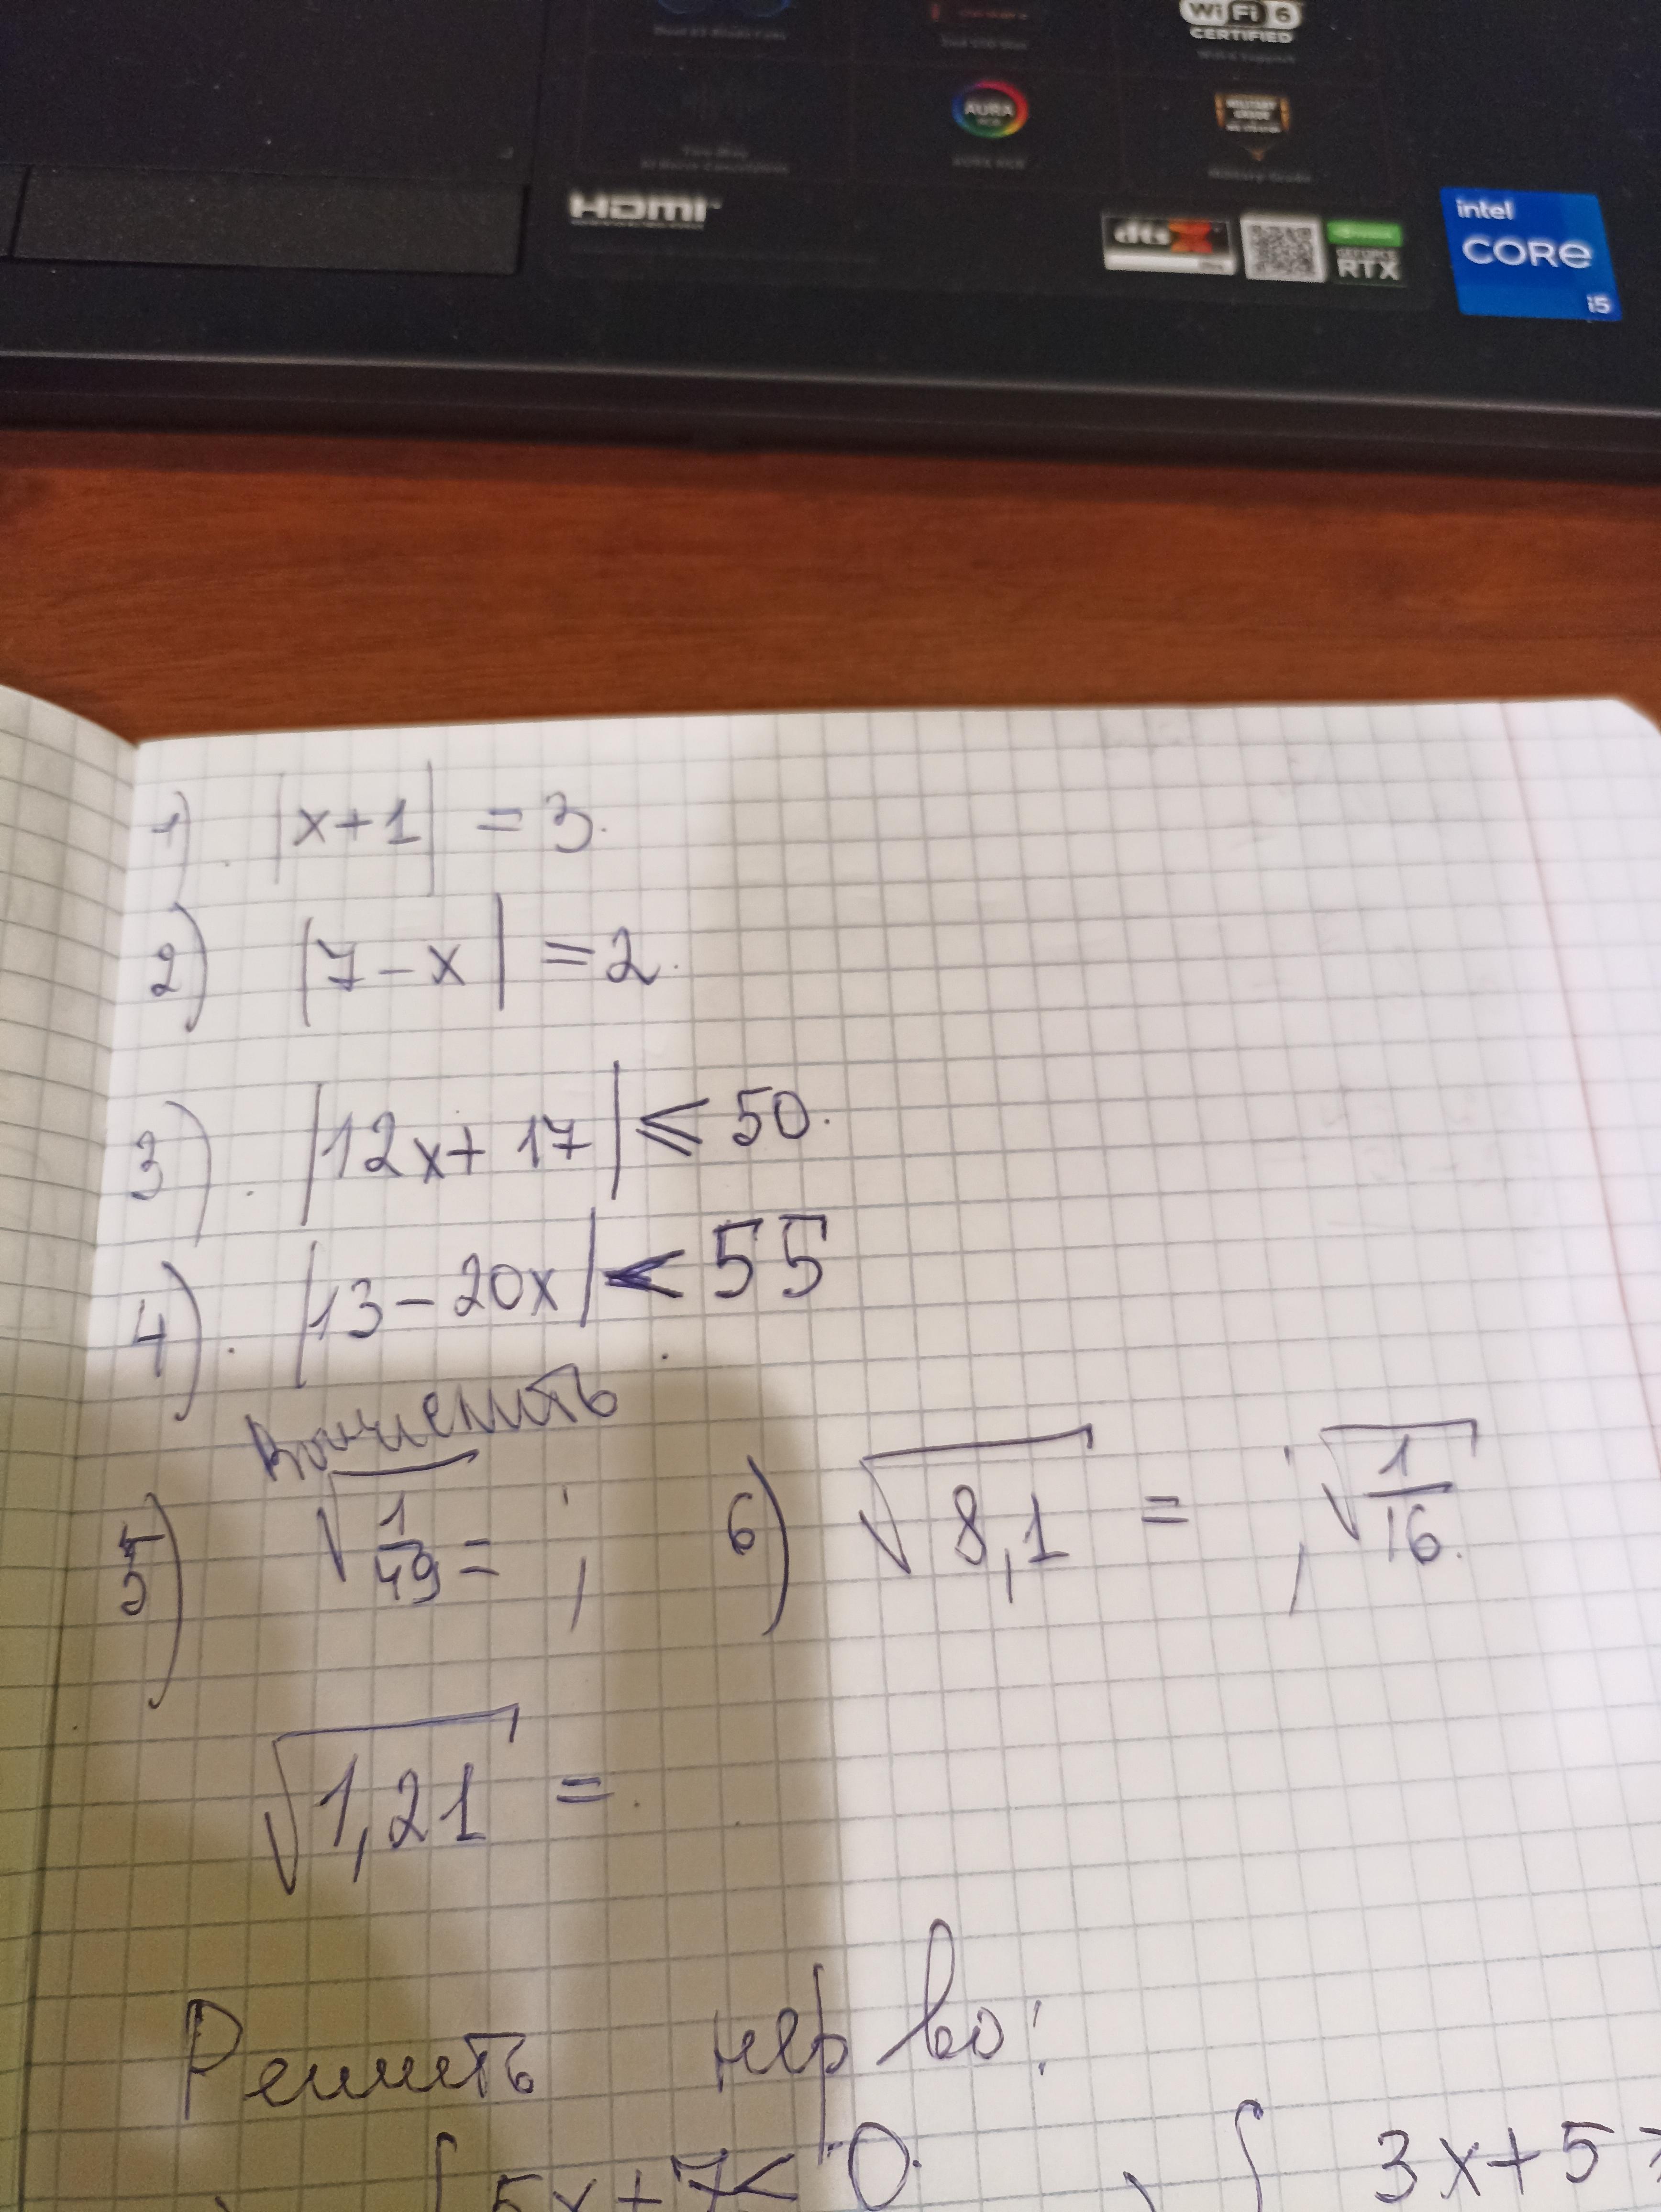 WiFi 6
CERTIFIED
AURA
AURA RGB
HDMI
dts X
GEFORCE
RTX
intel
CORE
i5
1). |x+1| = 3.
2) |7-x| = 2.
3). |12x+17| ≤ 50.
4). |13-20x| < 55
Вычислить
5) √(1/49) = ; 6) √8,1 = ; √(1/16).
√1,21 =
Решить нер во:
{ 5x+7<0. { 3x+5